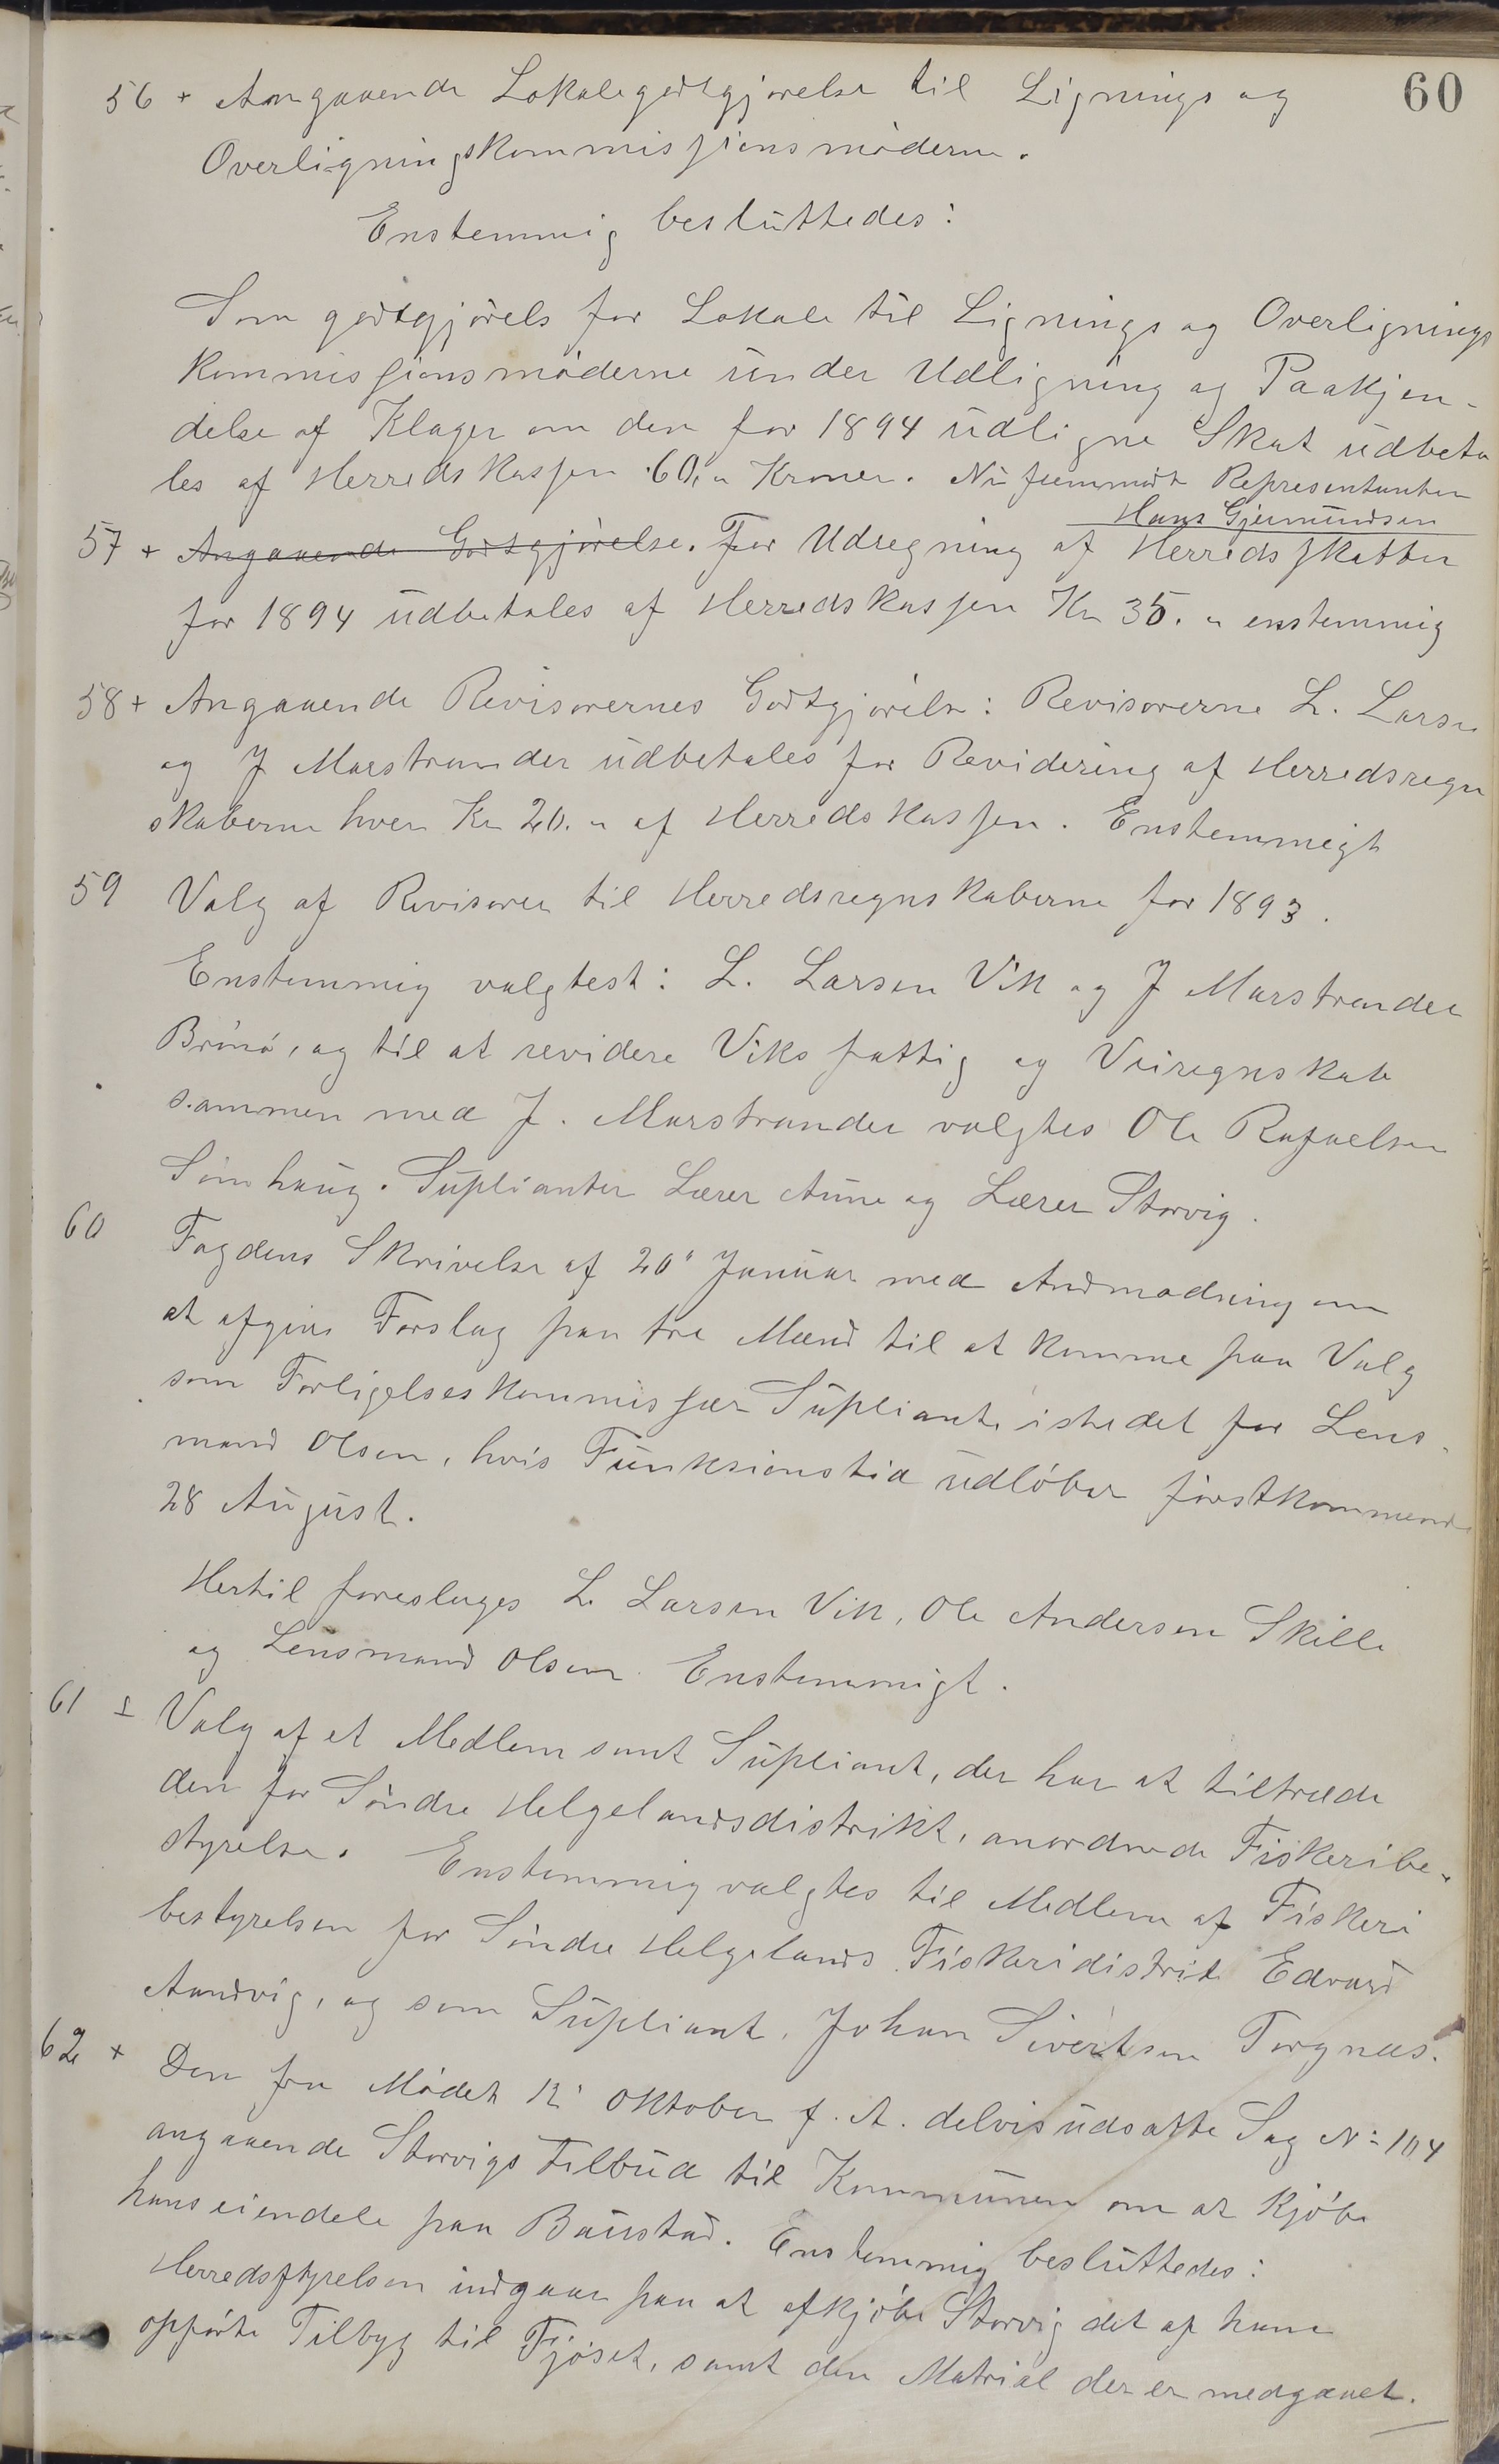 60
56 + Angaaende Lokalegodtgjørelse til Lignings og
Overligningskommissionsmøderne.
Enstemmig besluttedes:
Som godtgjørels for Lokale til Lignings og Overlignings
kommissionsmøderne under Udligning og Paakjen-
delse af Klager om den for 1894 udligne Skat udbeta
les af Herredskassen 60,„ Kroner. Nu fremmødt Representanten
Hans Gjermundsen
57 + Angaaende Godtgjørelse. For Udregning af Herredsskatten
for 1894 udbetales af Herredskassen Kr 35. „ enstemmig
58 + Angaaende Revisorernes Godtgjørelse: Revisorerne L. Larsen
og J Marstrander udbetales for Revidering af Herredsregn
skaberne hver Kr 20. „ af Herredskassen. Enstemmigt
59 Valg af Revisorer til Herredsregnskaberne for 1893.
Enstemmig valgtest: L. Larsen Vik og J Marstrander
Brønø, og til at revidere Viks fattig og Veiregnskab
sammen med J. Marstrander valgtes Ole Rafaelsen
Sømhaug. Suplianter Lærer Aune og Lærer Storvig.
60 Fogdens Skrivelse af 20' Januar med Andmodning om
at afgive Forslag paa tre Mænd til at komme paa Valg
som Forligelseskommissær Supliante istedet for Lens-
mand Olsen, hvis Funksionstid udløber førstkommende
28 August.
Hertil foresloges L. Larsen Vik, Ole Andersen Skille
og Lensmand Olsen. Enstemmigt.
61 + Valg af et Medlem samt Supliant, der har at tiltræde
den for Søndre Helgelandsdistrikt, anordnede Fiskeribe-
styrelse. Enstemmig valgtes til Medlem af Fiskeri
bestyrelsen for Søndre Helgelands Fiskeridistrikt Edvard
Aandvig, og som Supliant, Johan Sivertsen Torgnæs.
62 + Den fra Mødet 12' oktober f. A. delvis udsatte Sag N: 104
angaaende Storvigs Tilbud til Kommunen om at kjøbe
hans eiendele paa Baustad. Enstemmig besluttedes:
Herredsstyrelsen indgaar paa at afkjøbe Storvig det af ham
opførte Tilbyg til Fjøset, samt den Matrial der er medgaaet.